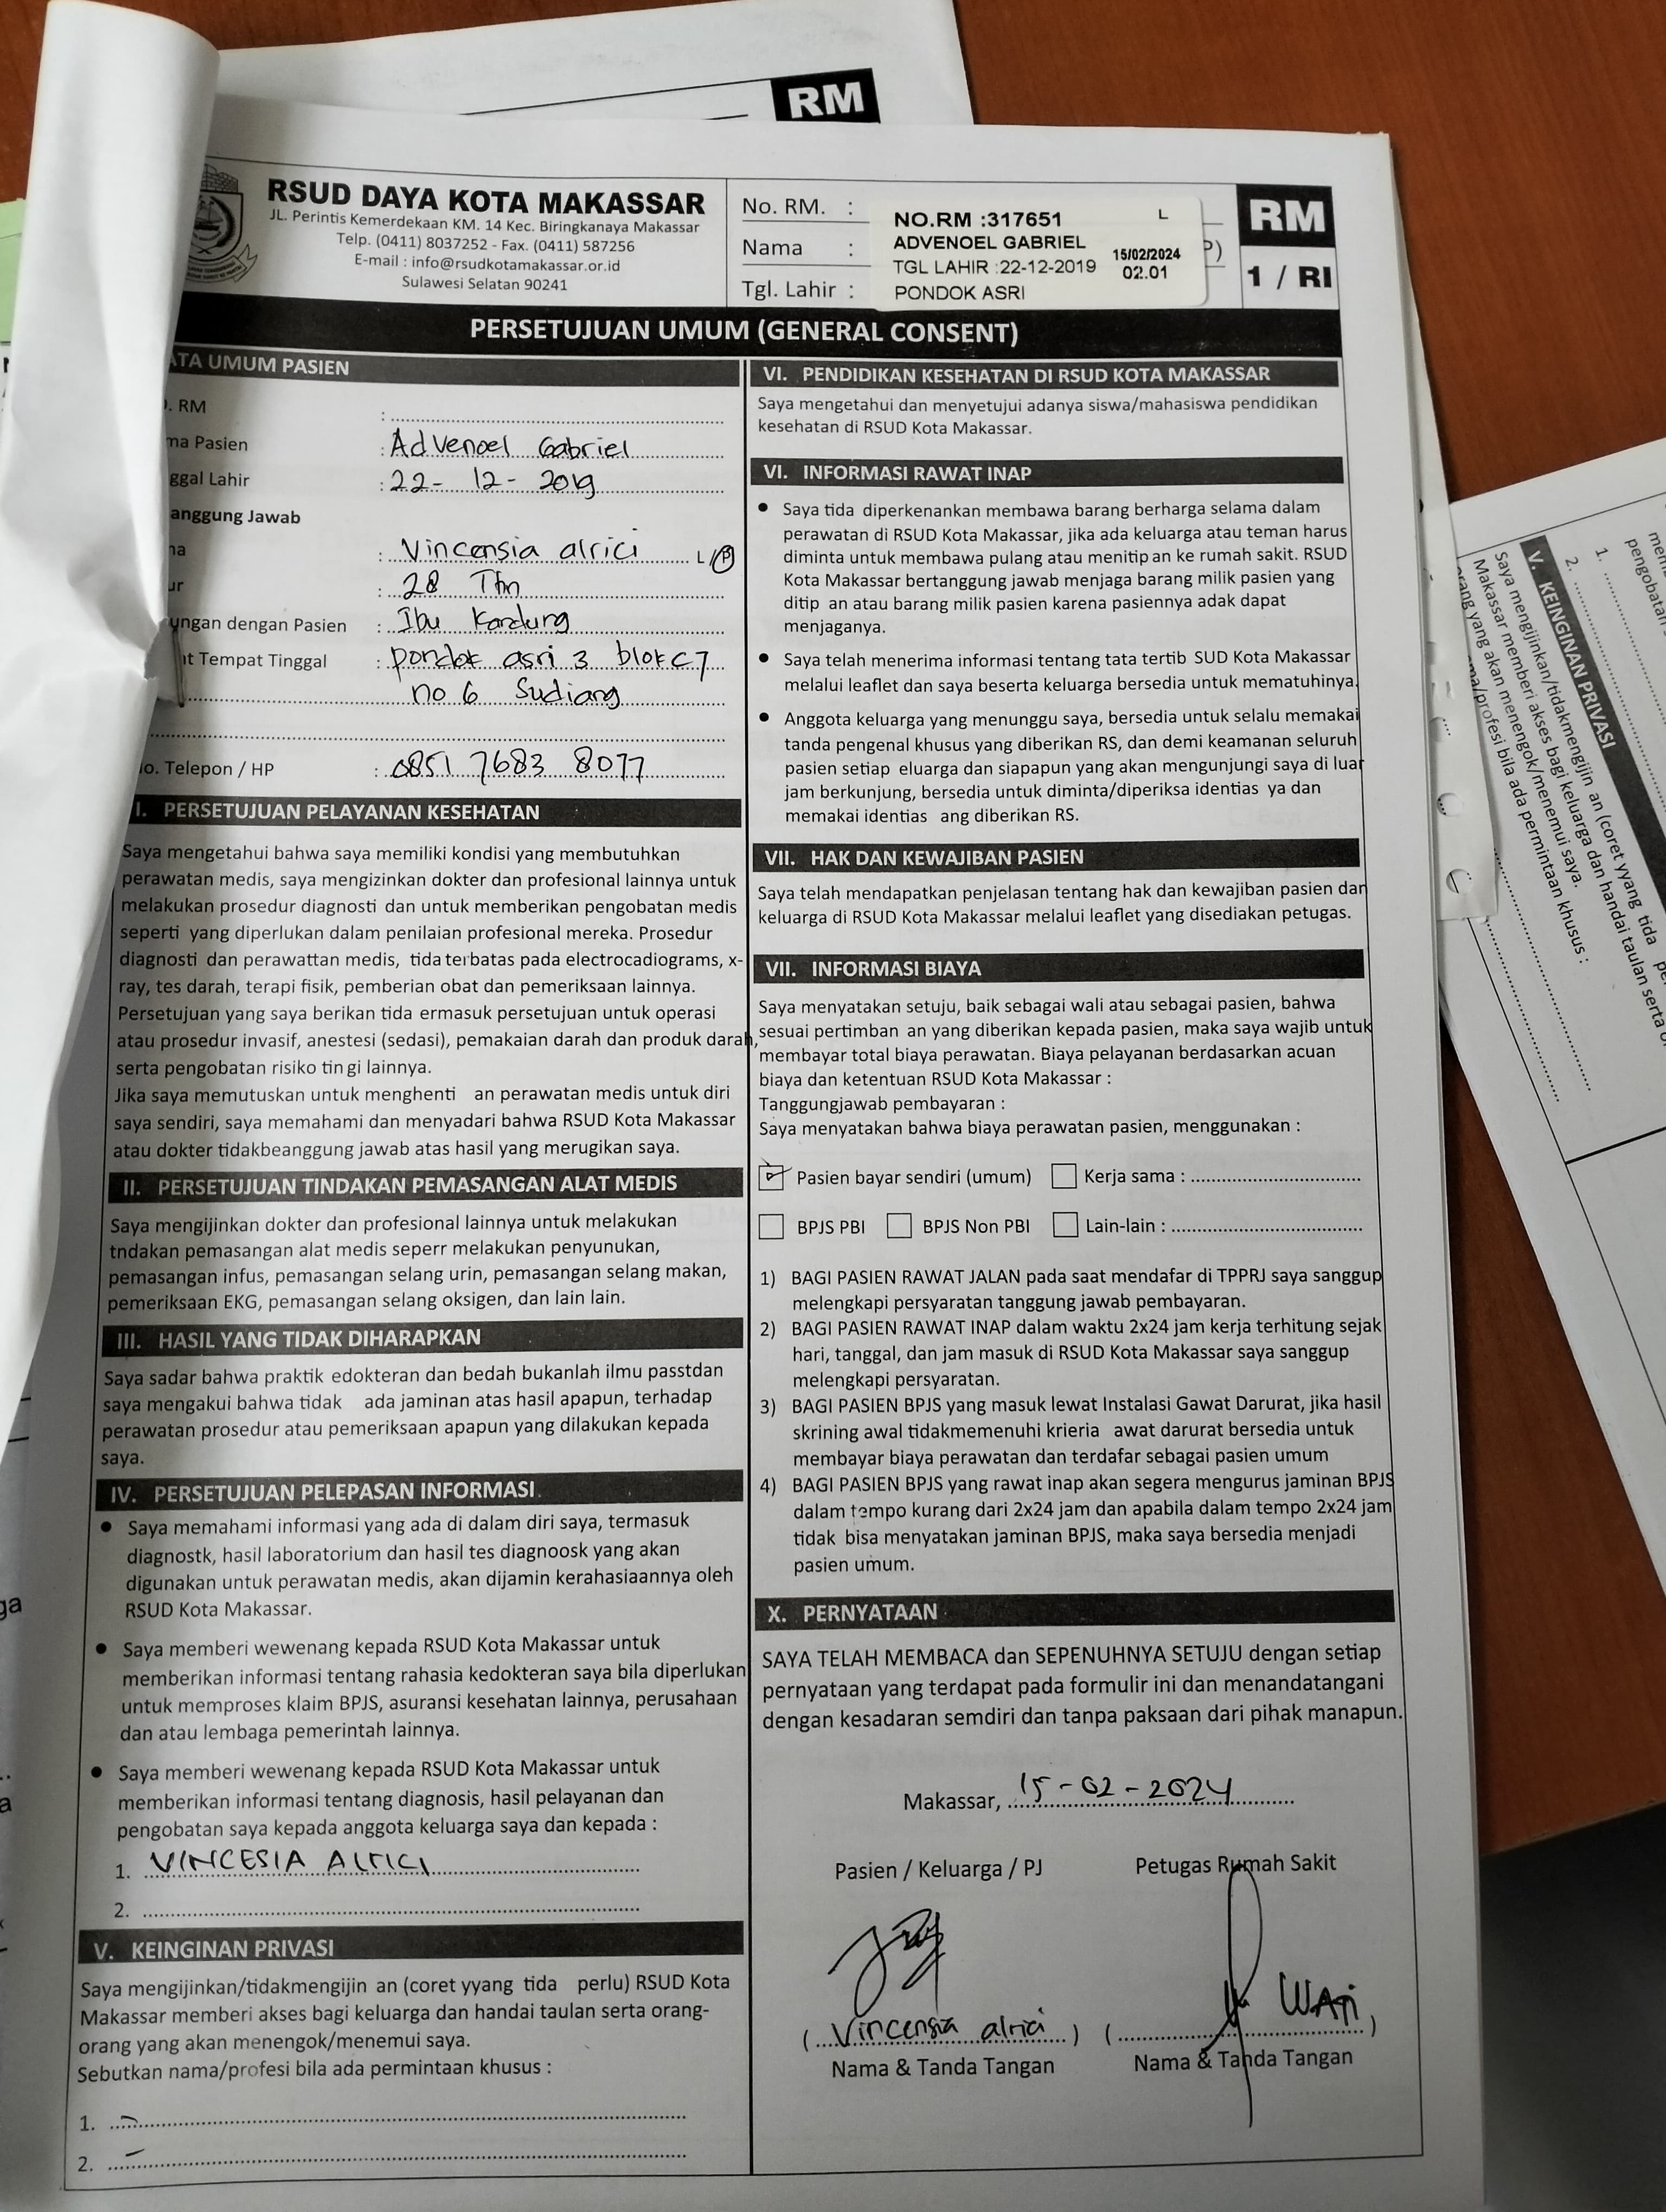 RM
RSUD DAYA KOTA MAKASSAR
JL. Perintis Kemerdekaan KM. 14 Kec. Biringkanaya Makassar
Telp. (0411) 8037252 - Fax. (0411) 587256
E-mail : info@rsudkotamakassar.or.id
Sulawesi Selatan 90241
No. RM. :
Nama :
Tgl. Lahir :
NO.RM :317651 L
ADVENOEL GABRIEL
TGL LAHIR :22-12-2019
PONDOK ASRI
15/02/2024
02.01
P)
RM
1 / RI
PERSETUJUAN UMUM (GENERAL CONSENT)
ATA UMUM PASIEN
. RM :
ma Pasien : Advenoel Gabriel
ggal Lahir : 22- 12- 2019
anggung Jawab
na : Vincensia alrici L/P
ur : 28 Thn
ungan dengan Pasien : Ibu Kandung
at Tempat Tinggal : pondok asri 3 blok C7
no 6 Sudiang
o. Telepon / HP : 0851 7683 8077
I. PERSETUJUAN PELAYANAN KESEHATAN
Saya mengetahui bahwa saya memiliki kondisi yang membutuhkan
perawatan medis, saya mengizinkan dokter dan profesional lainnya untuk
melakukan prosedur diagnosti dan untuk memberikan pengobatan medis
seperti yang diperlukan dalam penilaian profesional mereka. Prosedur
diagnosti dan perawattan medis, tida terbatas pada electrocadiograms, x-
ray, tes darah, terapi fisik, pemberian obat dan pemeriksaan lainnya.
Persetujuan yang saya berikan tida ermasuk persetujuan untuk operasi
atau prosedur invasif, anestesi (sedasi), pemakaian darah dan produk darah,
serta pengobatan risiko tin gi lainnya.
Jika saya memutuskan untuk menghenti an perawatan medis untuk diri
saya sendiri, saya memahami dan menyadari bahwa RSUD Kota Makassar
atau dokter tidakbeanggung jawab atas hasil yang merugikan saya.
II. PERSETUJUAN TINDAKAN PEMASANGAN ALAT MEDIS
Saya mengijinkan dokter dan profesional lainnya untuk melakukan
tndakan pemasangan alat medis seperr melakukan penyunukan,
pemasangan infus, pemasangan selang urin, pemasangan selang makan,
pemeriksaan EKG, pemasangan selang oksigen, dan lain lain.
III. HASIL YANG TIDAK DIHARAPKAN
Saya sadar bahwa praktik edokteran dan bedah bukanlah ilmu passtdan
saya mengakui bahwa tidak ada jaminan atas hasil apapun, terhadap
perawatan prosedur atau pemeriksaan apapun yang dilakukan kepada
saya.
IV. PERSETUJUAN PELEPASAN INFORMASI
• Saya memahami informasi yang ada di dalam diri saya, termasuk
diagnostk, hasil laboratorium dan hasil tes diagnoosk yang akan
digunakan untuk perawatan medis, akan dijamin kerahasiaannya oleh
RSUD Kota Makassar.
• Saya memberi wewenang kepada RSUD Kota Makassar untuk
memberikan informasi tentang rahasia kedokteran saya bila diperlukan
untuk memproses klaim BPJS, asuransi kesehatan lainnya, perusahaan
dan atau lembaga pemerintah lainnya.
• Saya memberi wewenang kepada RSUD Kota Makassar untuk
memberikan informasi tentang diagnosis, hasil pelayanan dan
pengobatan saya kepada anggota keluarga saya dan kepada :
1. VINCESIA ALRICI
2.
V. KEINGINAN PRIVASI
Saya mengijinkan/tidakmengijin an (coret yyang tida perlu) RSUD Kota
Makassar memberi akses bagi keluarga dan handai taulan serta orang-
orang yang akan menengok/menemui saya.
Sebutkan nama/profesi bila ada permintaan khusus :
1. -
2. -
VI. PENDIDIKAN KESEHATAN DI RSUD KOTA MAKASSAR
Saya mengetahui dan menyetujui adanya siswa/mahasiswa pendidikan
kesehatan di RSUD Kota Makassar.
VI. INFORMASI RAWAT INAP
• Saya tida diperkenankan membawa barang berharga selama dalam
perawatan di RSUD Kota Makassar, jika ada keluarga atau teman harus
diminta untuk membawa pulang atau menitip an ke rumah sakit. RSUD
Kota Makassar bertanggung jawab menjaga barang milik pasien yang
ditip an atau barang milik pasien karena pasiennya adak dapat
menjaganya.
• Saya telah menerima informasi tentang tata tertib SUD Kota Makassar
melalui leaflet dan saya beserta keluarga bersedia untuk mematuhinya.
• Anggota keluarga yang menunggu saya, bersedia untuk selalu memakai
tanda pengenal khusus yang diberikan RS, dan demi keamanan seluruh
pasien setiap eluarga dan siapapun yang akan mengunjungi saya di luar
jam berkunjung, bersedia untuk diminta/diperiksa identias ya dan
memakai identias ang diberikan RS.
VII. HAK DAN KEWAJIBAN PASIEN
Saya telah mendapatkan penjelasan tentang hak dan kewajiban pasien dan
keluarga di RSUD Kota Makassar melalui leaflet yang disediakan petugas.
VII. INFORMASI BIAYA
Saya menyatakan setuju, baik sebagai wali atau sebagai pasien, bahwa
sesuai pertimban an yang diberikan kepada pasien, maka saya wajib untuk
membayar total biaya perawatan. Biaya pelayanan berdasarkan acuan
biaya dan ketentuan RSUD Kota Makassar :
Tanggungjawab pembayaran :
Saya menyatakan bahwa biaya perawatan pasien, menggunakan :
Pasien bayar sendiri (umum) Kerja sama :
BPJS PBI BPJS Non PBI Lain-lain :
1) BAGI PASIEN RAWAT JALAN pada saat mendafar di TPPRJ saya sanggup
melengkapi persyaratan tanggung jawab pembayaran.
2) BAGI PASIEN RAWAT INAP dalam waktu 2x24 jam kerja terhitung sejak
hari, tanggal, dan jam masuk di RSUD Kota Makassar saya sanggup
melengkapi persyaratan.
3) BAGI PASIEN BPJS yang masuk lewat Instalasi Gawat Darurat, jika hasil
skrining awal tidakmemenuhi krieria awat darurat bersedia untuk
membayar biaya perawatan dan terdafar sebagai pasien umum
4) BAGI PASIEN BPJS yang rawat inap akan segera mengurus jaminan BPJS
dalam tempo kurang dari 2x24 jam dan apabila dalam tempo 2x24 jam
tidak bisa menyatakan jaminan BPJS, maka saya bersedia menjadi
pasien umum.
X. PERNYATAAN
SAYA TELAH MEMBACA dan SEPENUHNYA SETUJU dengan setiap
pernyataan yang terdapat pada formulir ini dan menandatangani
dengan kesadaran semdiri dan tanpa paksaan dari pihak manapun.
Makassar, 15-02-2024
Pasien / Keluarga / PJ Petugas Rumah Sakit
(Vincensia alrici) (WATI)
Nama & Tanda Tangan Nama & Tanda Tangan
pengobatan
1.
2.
V. KEINGINAN PRIVASI
Saya mengijinkan/tidakmengijin an (coret yyang tida
Makassar memberi akses bagi keluarga dan handai taulan serta
orang yang akan menengok/menemui saya.
ma/profesi bila ada permintaan khusus :